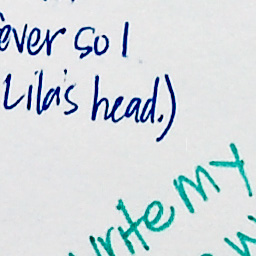 ever so I
Lila's head.)
write my